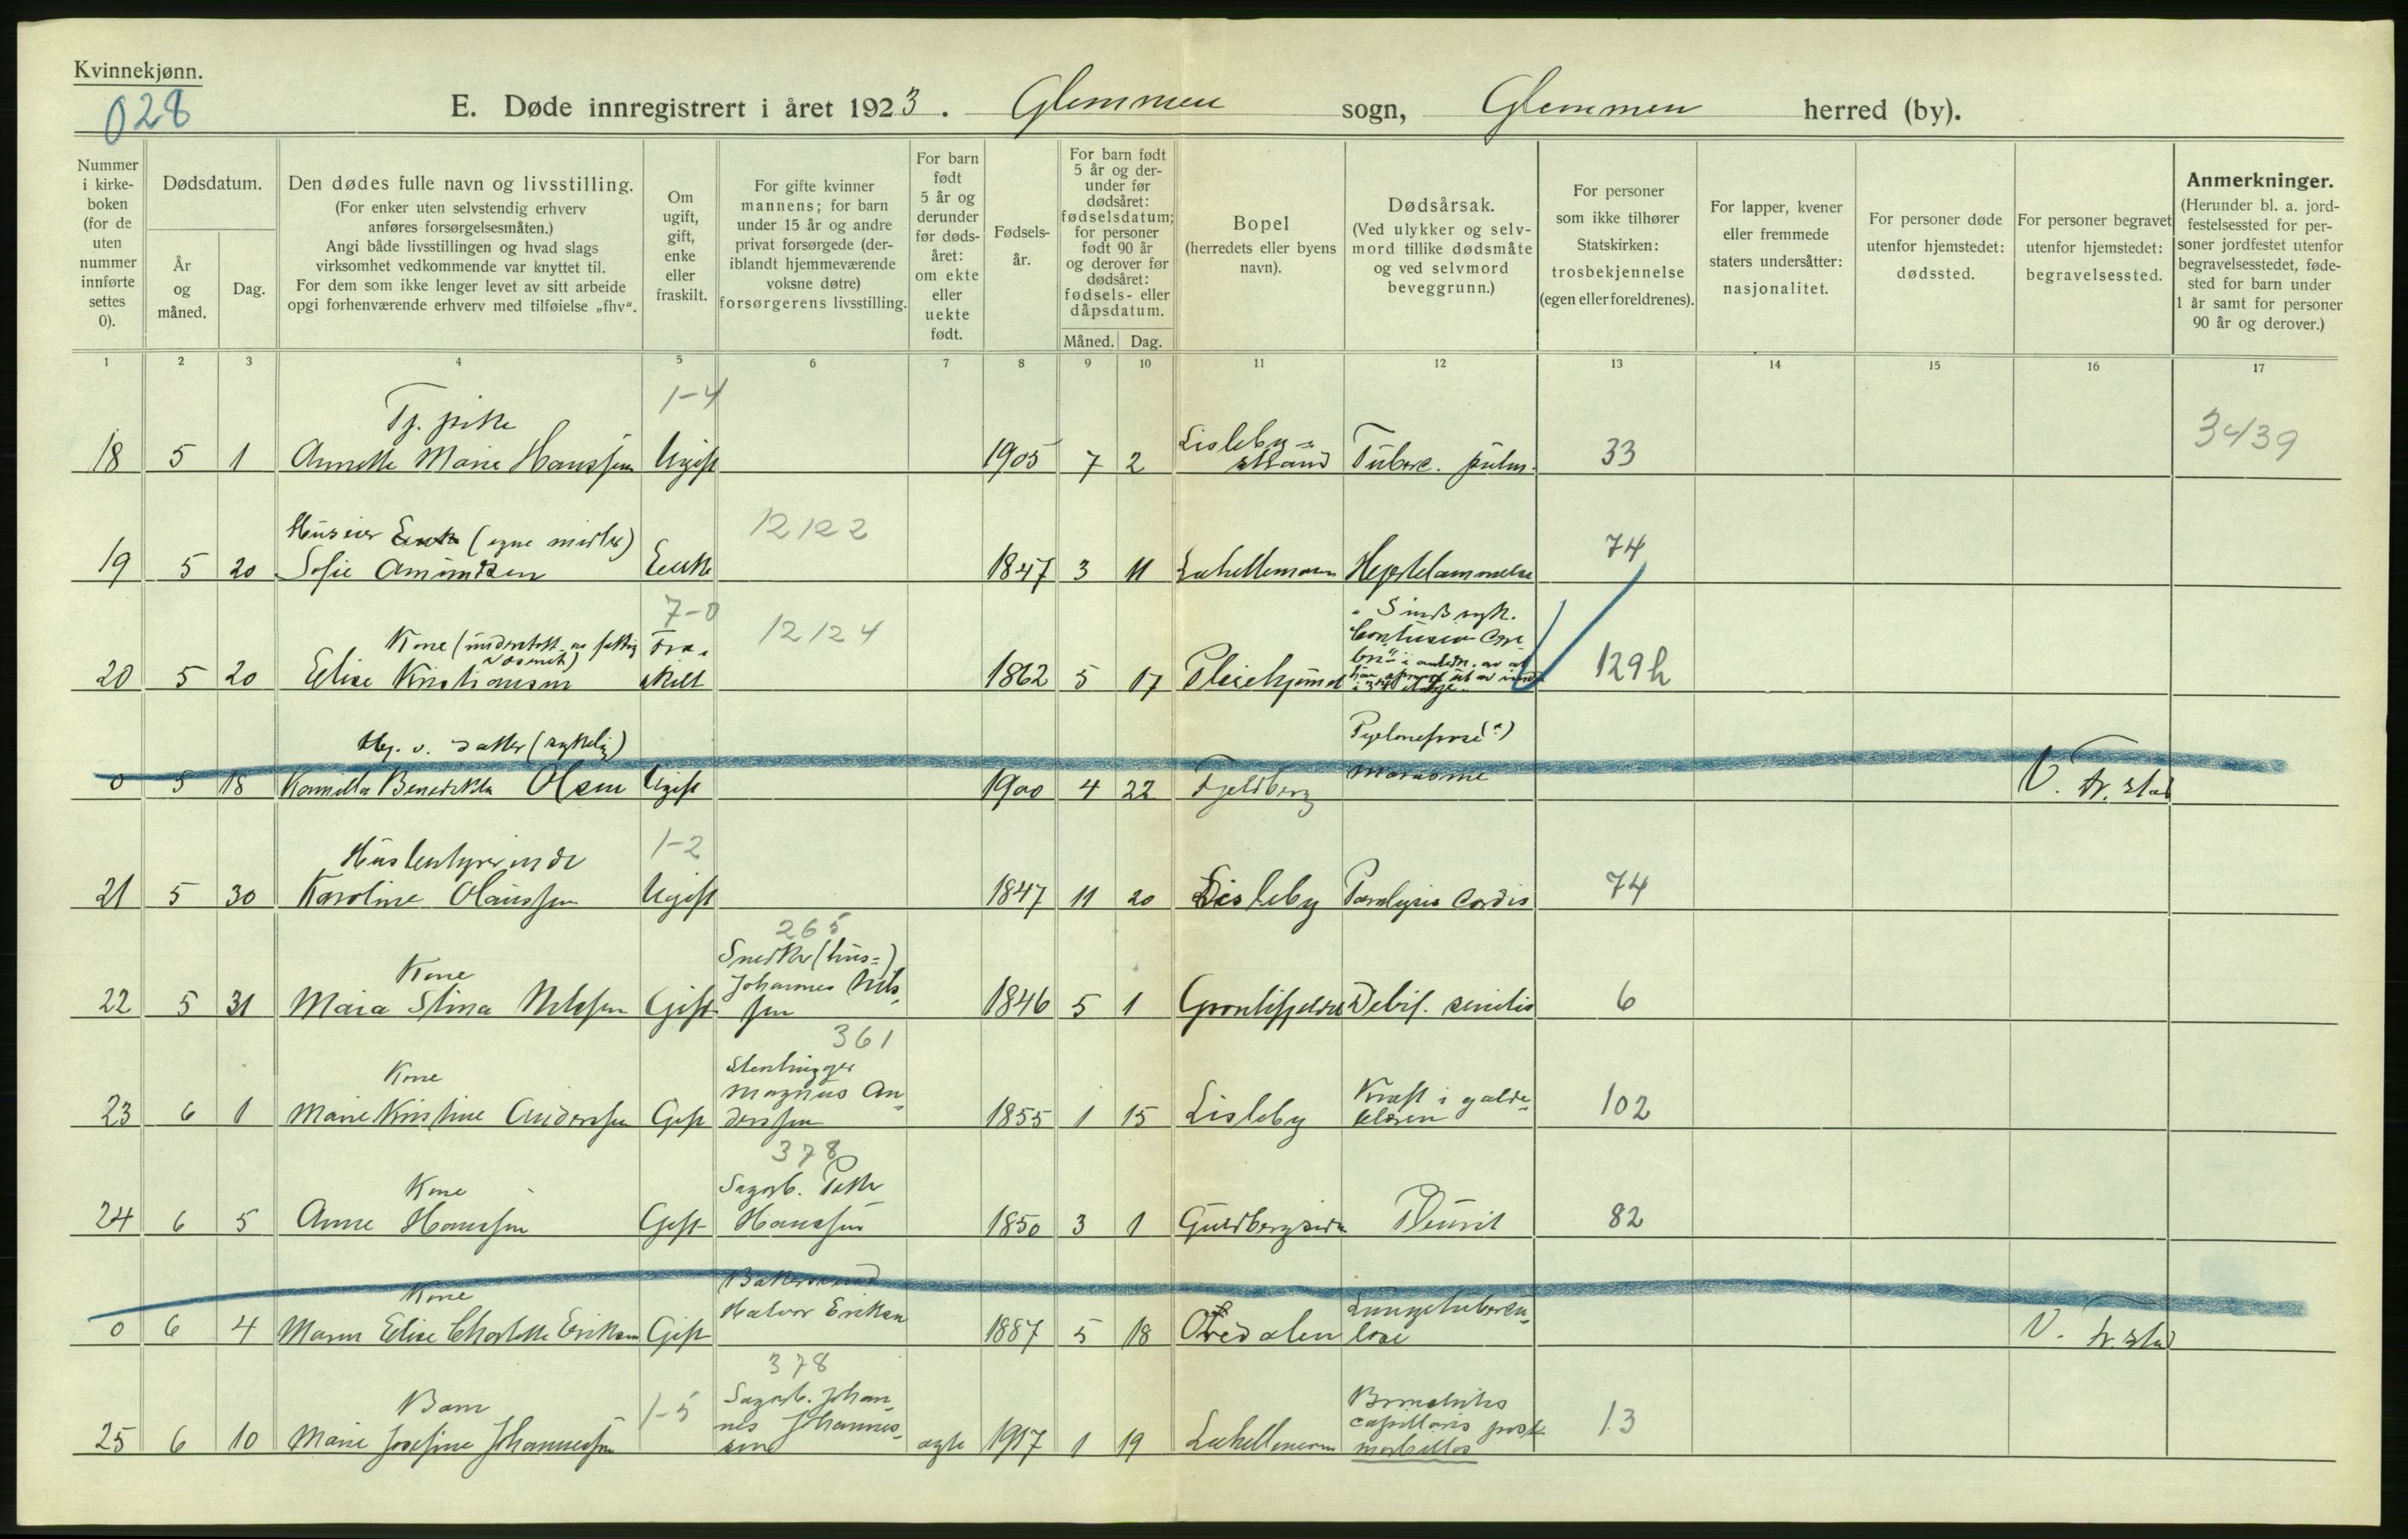 Kvinnekjønn.
028
E. Døde innregistrert i året 1923. Glemmen sogn, Glemmen herred (by).
Nummer i kirke-boken (for de uten nummer innførte settes 0).
Dødsdatum.
År og måned.
Dag.
Den dødes fulle navn og livsstilling.
(For enker uten selvstendig erhverv anføres forsørgelsesmåten.)
Angi både livsstillingen og hvad slags virksomhet vedkommende var knyttet til.
For dem som ikke lenger levet av sitt arbeide opgi forhenværende erhverv med tilføielse „fhv“.
Om ugift, gift, enke eller fraskilt.
For gifte kvinner mannens; for barn under 15 år og andre privat forsørgede (der-iblandt hjemmeværende voksne døtre) forsørgerens livsstilling.
For barn født 5 år og derunder før døds-året: om ekte eller uekte født.
Fødsels-år.
For barn født 5 år og der-under før dødsåret: fødselsdatum; for personer født 90 år og derover før dødsåret: fødsels- eller dåpsdatum.
Måned. Dag.
Bopel (herredets eller byens navn).
Dødsårsak. (Ved ulykker og selv-mord tillike dødsmåte og ved selvmord beveggrunn.)
For personer som ikke tilhører Statskirken: trosbekjennelse (egen eller foreldrenes).
For lapper, kvener eller fremmede staters undersåtter: nasjonalitet.
For personer døde utenfor hjemstedet: dødssted.
For personer begravet utenfor hjemstedet: begravelsessted.
Anmerkninger. (Herunder bl. a. jord-festelsessted for per-soner jordfestet utenfor begravelsesstedet, føde-sted for barn under 1 år samt for personer 90 år og derover.)
1 2 3 4 5 6 7 8 9 10 11 12 13 14 15 16 17
Tj. pike 1-4
18 5 1 Annette Marie Hanssen Ugift 1905 7 2 Lisleby= strand Tuberc. pulm. 33 3439
Huseier Enke (egne midler) 12122
19 5 20 Sofie Amundsen Enke 1847 3 11 Hjertelammelse 74
Kone (understøtt. av fattigvæsenet) 7-0 12124
20 5 20 Elise Kristiansen Fra-skilt 1862 5 17 Pleiehjemmet Sindssyk. Contusio Cere-bri" i 3die etage" 129h
Hj. v. datter (sykelig)
0 5 18 Kamilla Benedikte Olsen Ugift 1900 4 22 Fjeldberg Pyelonefrose (?) Marasme V. Fr.stad
Husbestyrerinde 1-2
21 5 30 Karoline Olaussen Ugift 1847 11 20 Lisleby Paralysis Cordis 74
Kone 265
22 5 31 Maia Stina Nilssen Gift Snedker (hus=) Johannes Nils-sen 1846 5 1 Debil. senilis 6
Kone 361
23 6 1 Marie Kristine Anderssen Gift Stenhugger Magnus An-derssen 1855 1 15 Lisleby Kræft i galde-blæren 102
Kone 378
24 6 5 Anne Hanssen Gift Sagarb. Petter Hanssen 1850 3 1 Guldbergsiden Pleurit 82
Kone
0 6 4 Elise Charlotte Eriksen Gift Bakersvend Halvor Eriksen 1887 5 18 Oredalen Lungetuberku-lose V. Fr.stad
Barn 1-5 378
25 6 10 Marie Josefine Johannessen Sagarb. Johan-nes Johannes-sen ægte 1917 1 19 Bronchitis capillaris post morbillos 13